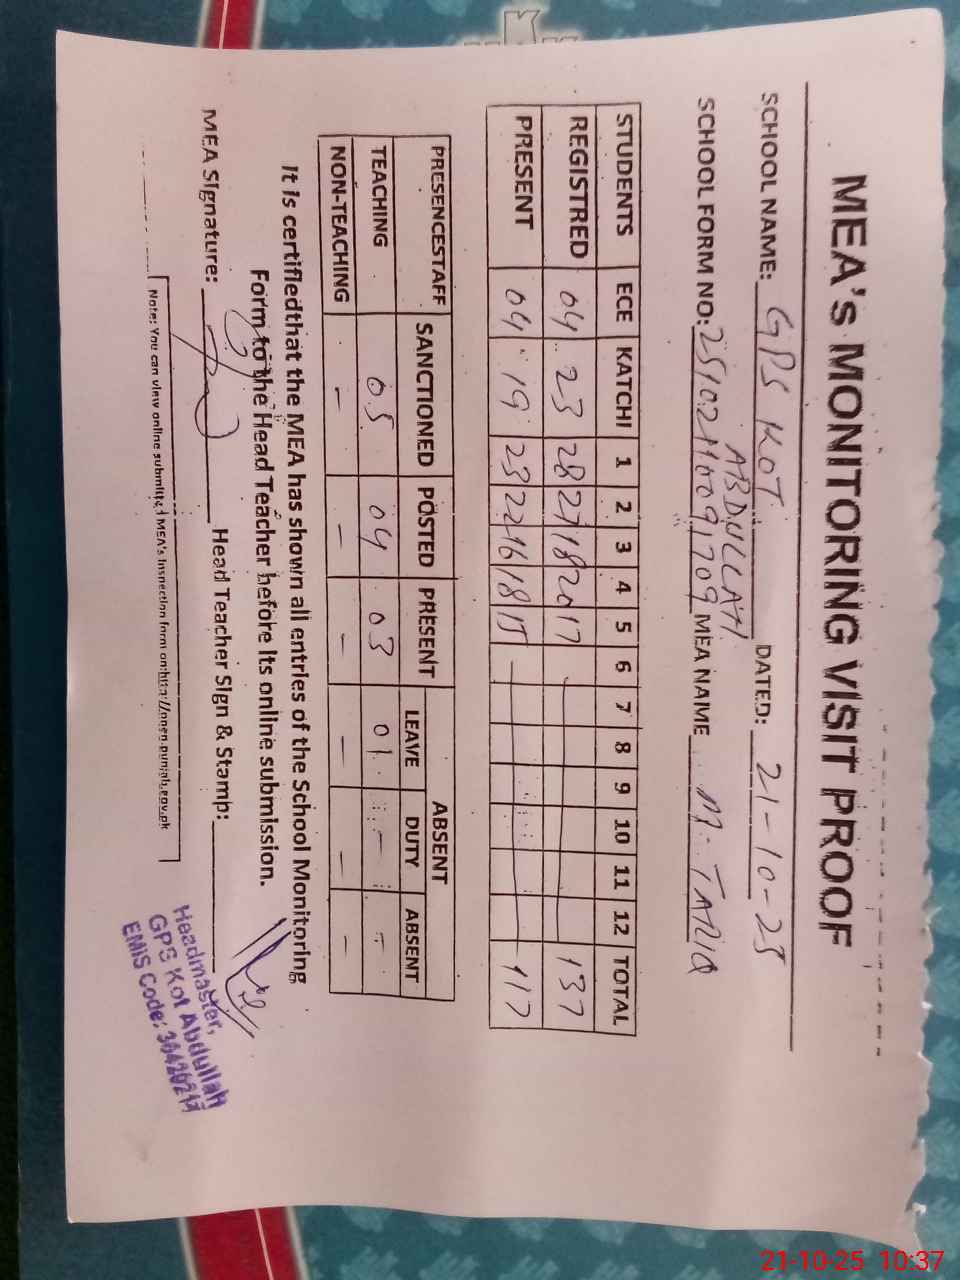 MEA's MONITORING VISIT PROOF
SCHOOL NAME: GPS KOT ABDULLAH DATED: 21-10-25
SCHOOL FORM NO: MEA NAME M. TARIQ
STUDENTS ECE KATCHI 1 2 3 4 5 6 7 8 9 10 11 12 TOTAL
REGISTRED 04 23 28 27 18 20 17 137
PRESENT 04 19 23 22 16 18 15 117
PRESENCESTAFF SANCTIONED POSTED PRESENT ABSENT
LEAVE DUTY ABSENT
TEACHING 05 04 03 01 - -
NON-TEACHING - - - - - -
It is certifiedthat the MEA has shown all entries of the School Monitoring
Form to the Head Teacher before its online submission.
MEA Signature: Head Teacher Sign & Stamp:
Headmaster,
GPS Kot Abdullah
EMIS Code:
Note: You can view online submitted MEA's Inspection form on open.punjab.gov.pk
21-10-25 10:37